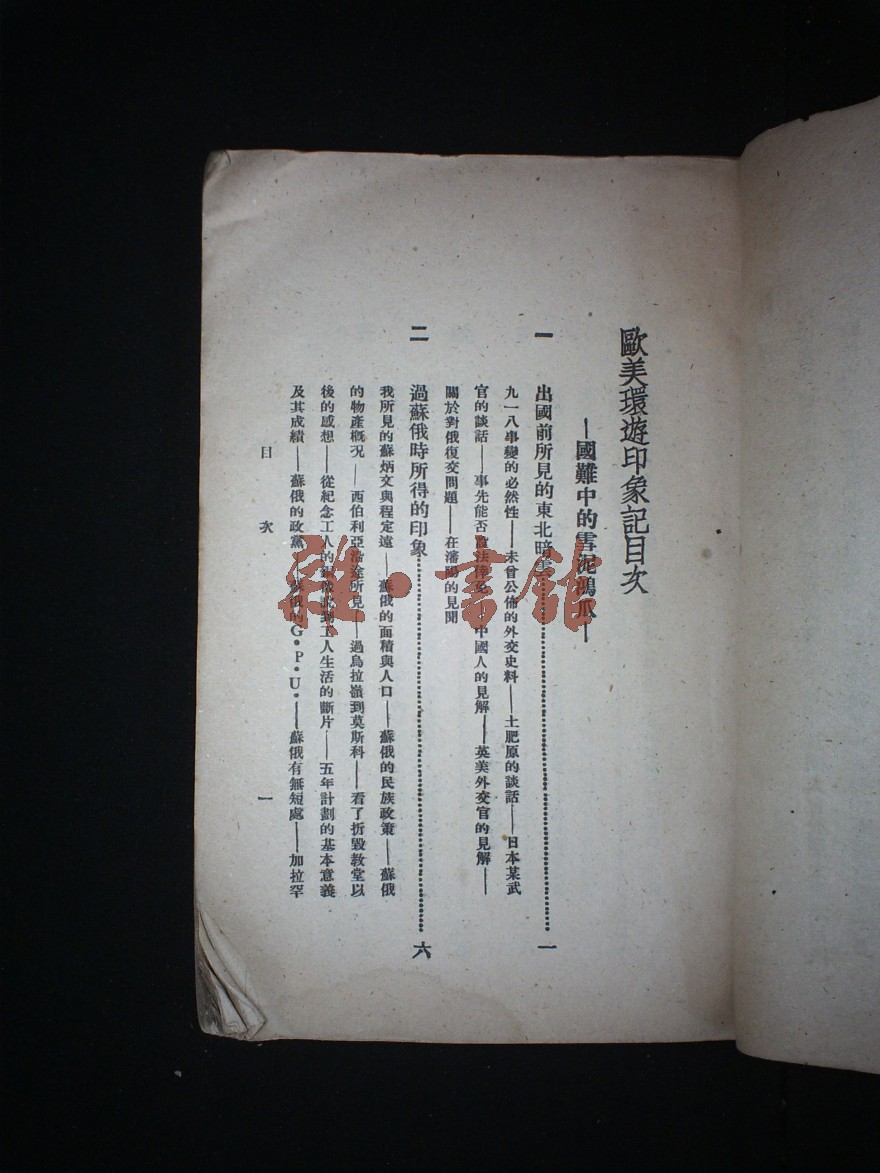 歐美環遊印象記目次
—國難中的雪泥鴻爪—
一 出國前所見的東北暗雲……一
九一八事變的必然性——未曾公佈的外交史料——土肥原的談話——日本某武
官的談話——事先能否設法倖免——中國人的見解——英美外交官的見解——
關於對俄復交問題——在瀋陽的見聞
二 過蘇俄時所得的印象……六
我所見的蘇炳文與程定遠——蘇俄的面積與人口——蘇俄的民族政策——蘇俄
的物產概況——西伯利亞沿途所見——過烏拉嶺到莫斯科——看了折毀教堂以
後的感想——從紀念工人的 說到工人生活的斷片——五年計劃的基本意義
及其成績——蘇俄的政黨——蘇俄的G·P·U·——蘇俄有無短處——加拉罕
目次 一
雅·書館